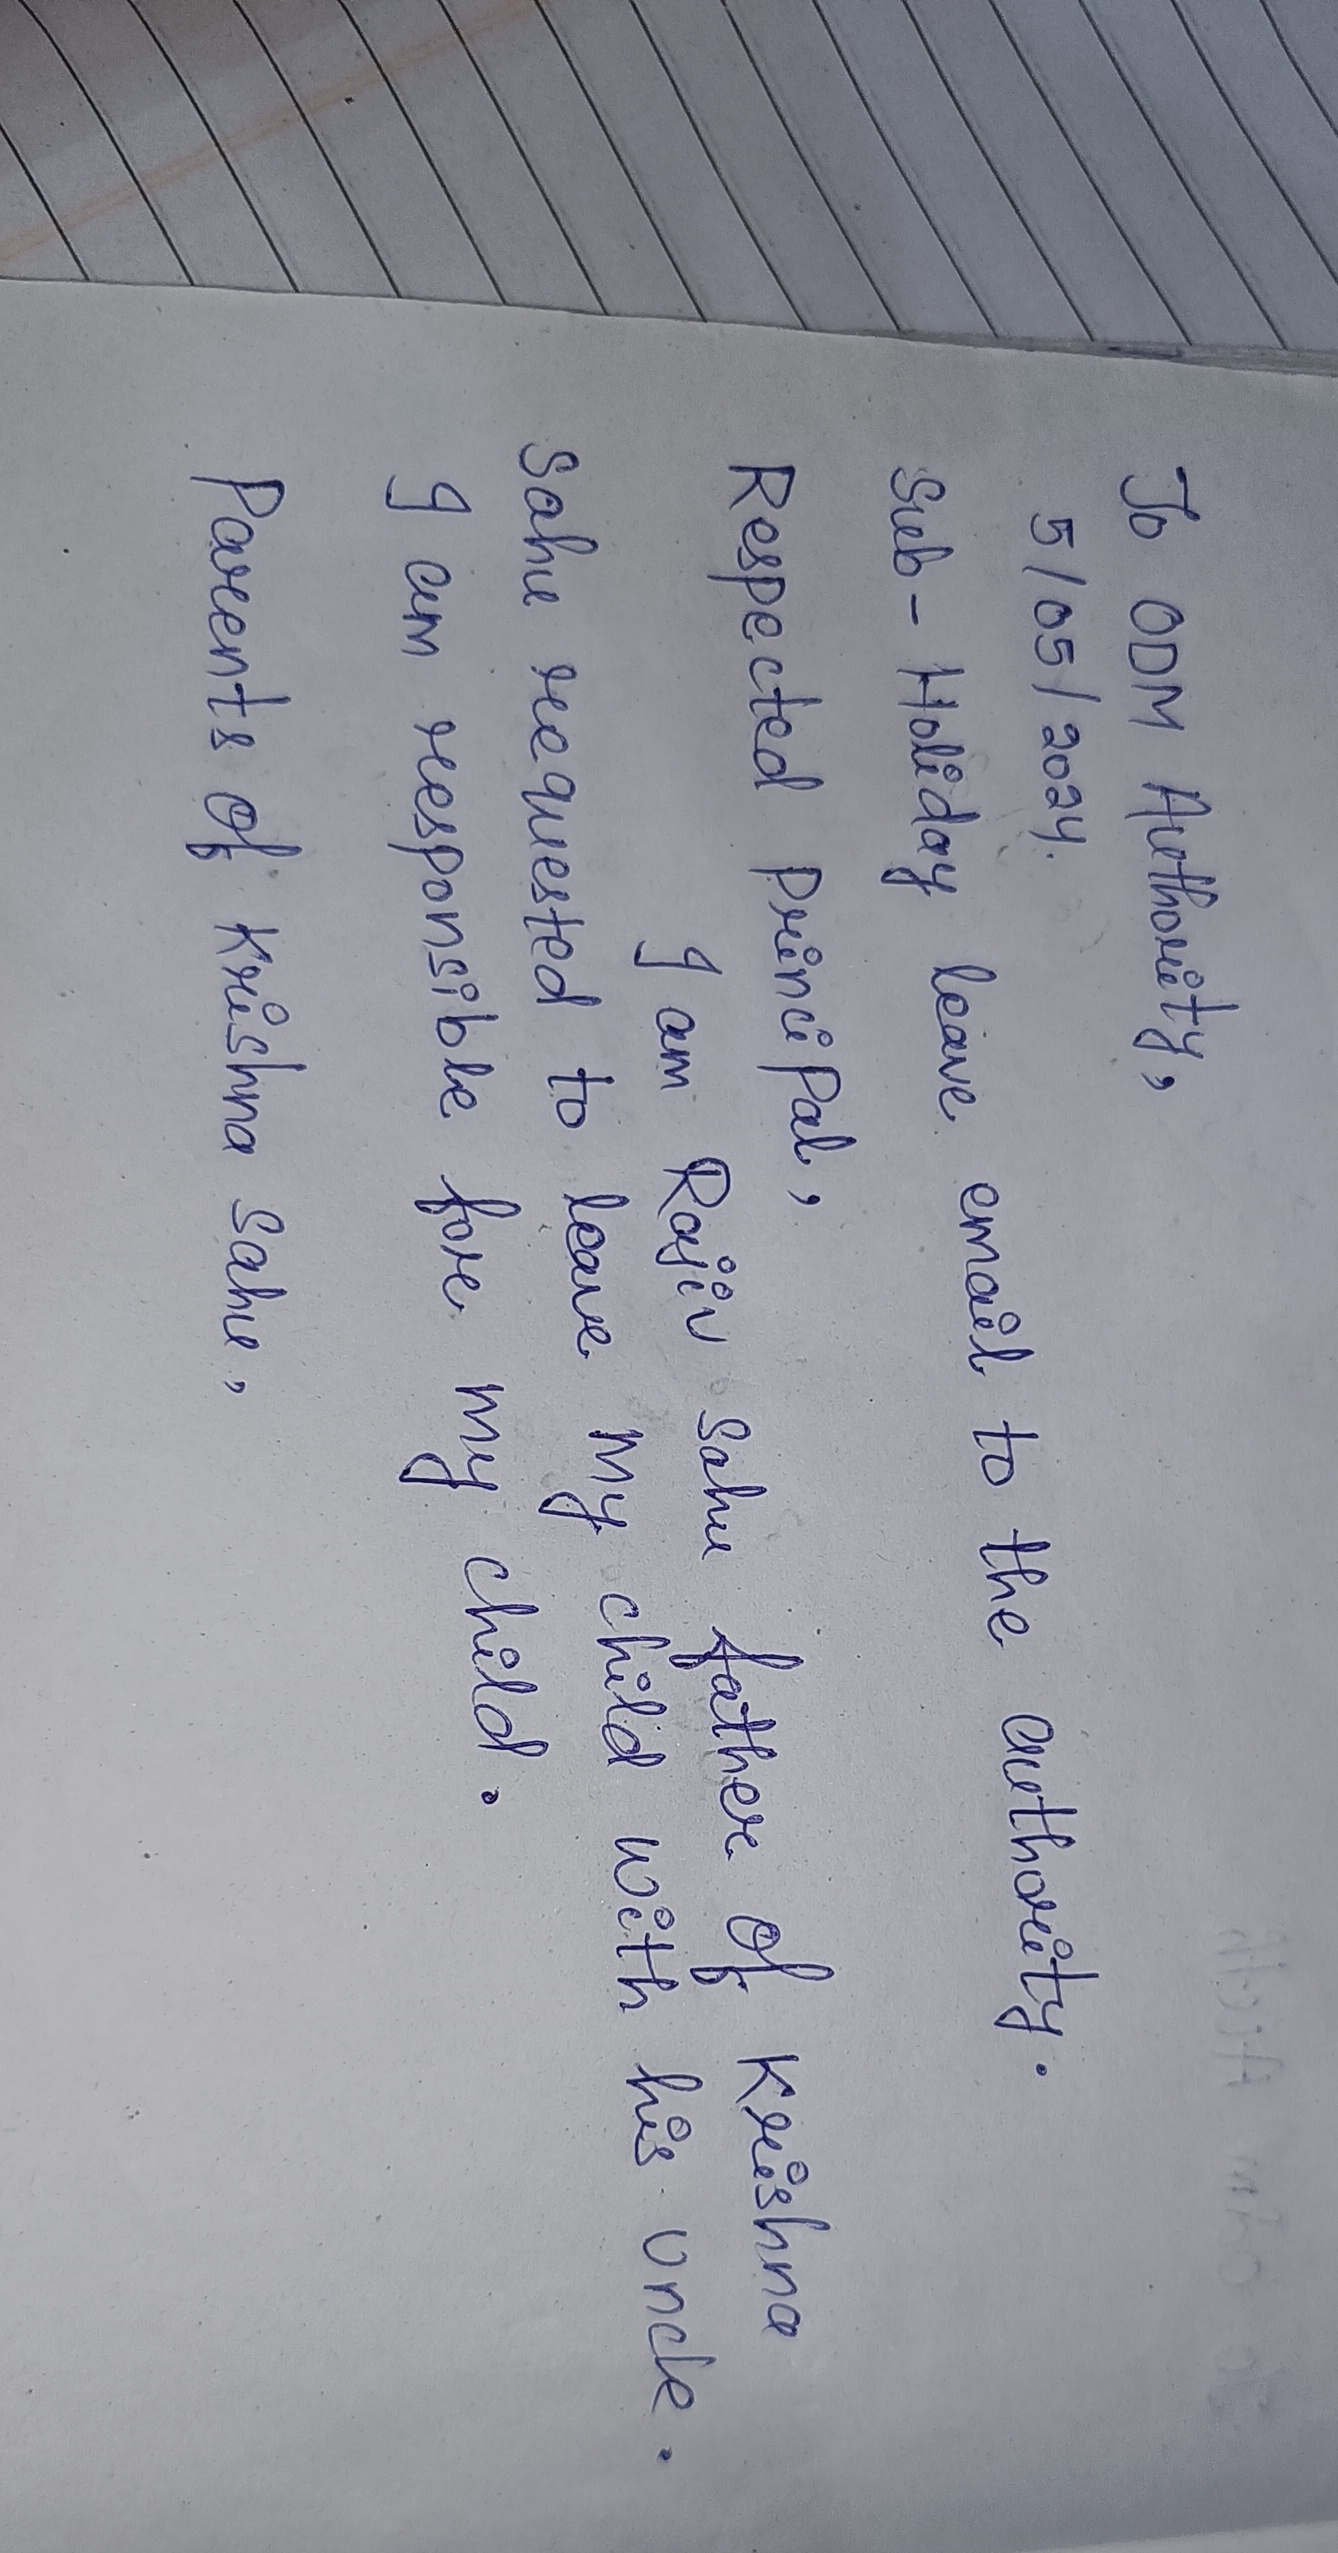 To ODM Authority,
5/05/2024.
Sub- Holiday leave email to the authority.
Respected Principal,
I am Rajiv Sahu father of Krishna
Sahu requested to leave my child with his uncle.
I am responsible for my child.
Parents of Krishna Sahu,